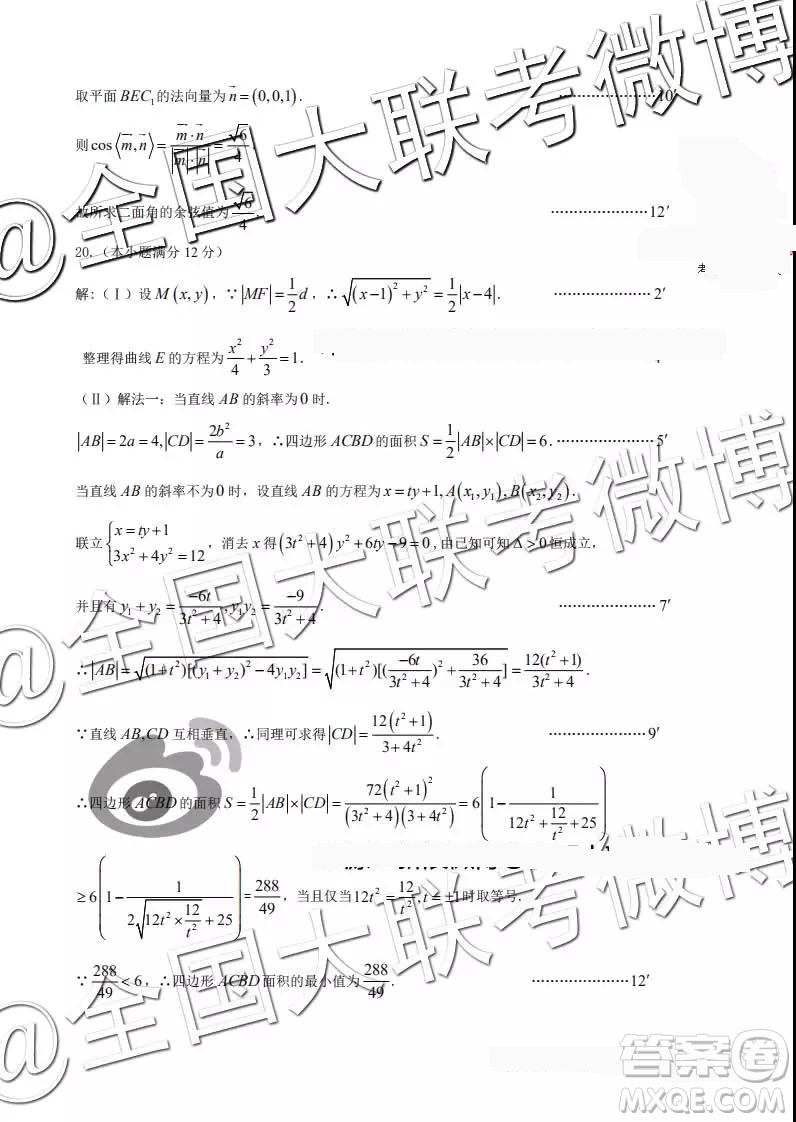 取平面 BEC₁ 的法向量为 n⃗ = (0,0,1). ………………… 10′
则 cos⟨m⃗, n⃗⟩ = (m⃗·n⃗)/(|m⃗|·|n⃗|) = √6/4.
故所求二面角的余弦值为 √6/4. ………………… 12′
20.（本小题满分 12 分）
解:(Ⅰ)设 M(x,y), ∵|MF| = 1/2 d, ∴√((x−1)² + y²) = 1/2|x−4|. ………………… 2′
整理得曲线 E 的方程为 x²/4 + y²/3 = 1.
(Ⅱ)解法一：当直线 AB 的斜率为 0 时.
|AB| = 2a = 4, |CD| = 2b²/a = 3, ∴四边形 ACBD 的面积 S = 1/2|AB|×|CD| = 6. ………………… 5′
当直线 AB 的斜率不为 0 时，设直线 AB 的方程为 x = ty+1, A(x₁,y₁), B(x₂,y₂).
联立 { x = ty+1
3x² + 4y² = 12 , 消去 x 得 (3t²+4)y² + 6ty − 9 = 0, 由已知可知 Δ > 0 恒成立，
并且有 y₁ + y₂ = −6t/(3t²+4), y₁y₂ = −9/(3t²+4). ………………… 7′
∴|AB| = √((1+t²)[(y₁+y₂)² − 4y₁y₂]) = √((1+t²)[(−6t/(3t²+4))² + 36/(3t²+4)]) = 12(t²+1)/(3t²+4).
∵直线 AB,CD 互相垂直，∴同理可求得 |CD| = 12(t²+1)/(3+4t²). ………………… 9′
∴四边形 ACBD 的面积 S = 1/2|AB|×|CD| = 72(t²+1)²/((3t²+4)(3+4t²)) = 6(1 − 1/(12t² + 12/t² + 25))
≥ 6(1 − 1/(2√(12t² × 12/t²) + 25)) = 288/49, 当且仅当 12t² = 12/t², t = ±1 时取等号.
∵ 288/49 < 6, ∴四边形 ACBD 面积的最小值为 288/49. ………………… 12′
@全国大联考微博
@全国大联考微博
答案卷
MXQE.COM